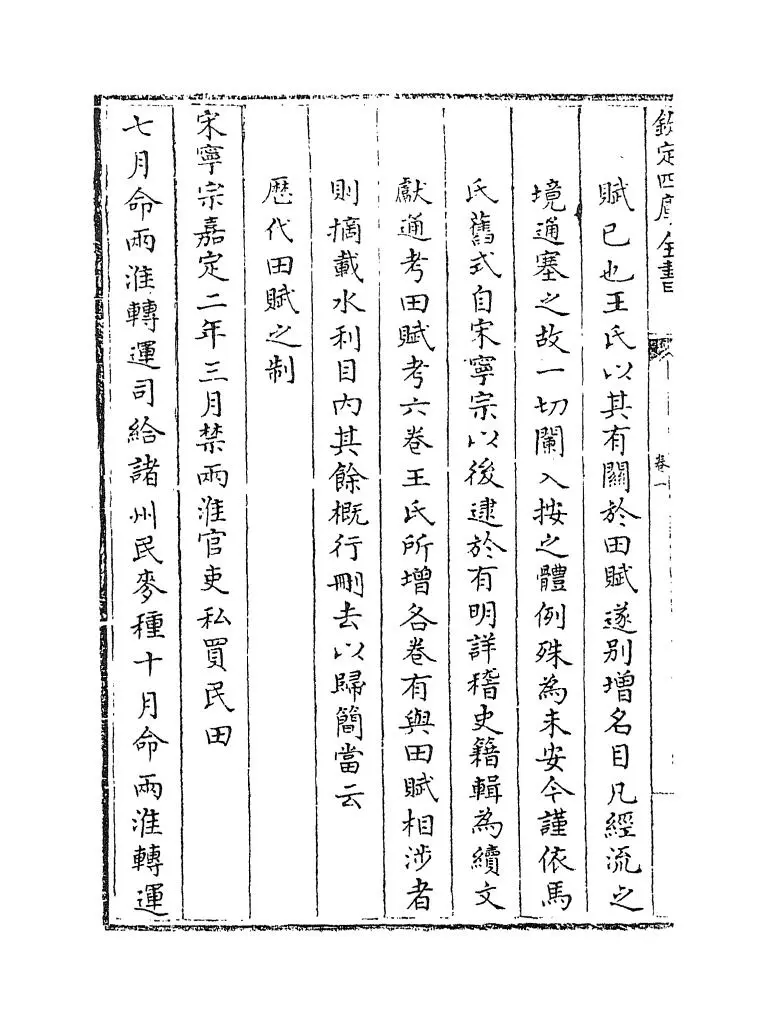 欽定四庫全書
卷一
賦已也王氏以其有關於田賦遂别增名目凡經流之
境通塞之故一切闌入按之體例殊為未安今謹依馬
氏舊式自宋寧宗以後逮於有明詳稽史籍輯為續文
獻通考田賦考六卷王氏所增各卷有與田賦相涉者
則摘載水利目内其餘概行刪去以歸簡當云
歷代田賦之制
宋寧宗嘉定二年三月禁兩淮官吏私買民田
七月命兩淮轉運司給諸州民麥種十月命兩淮轉運